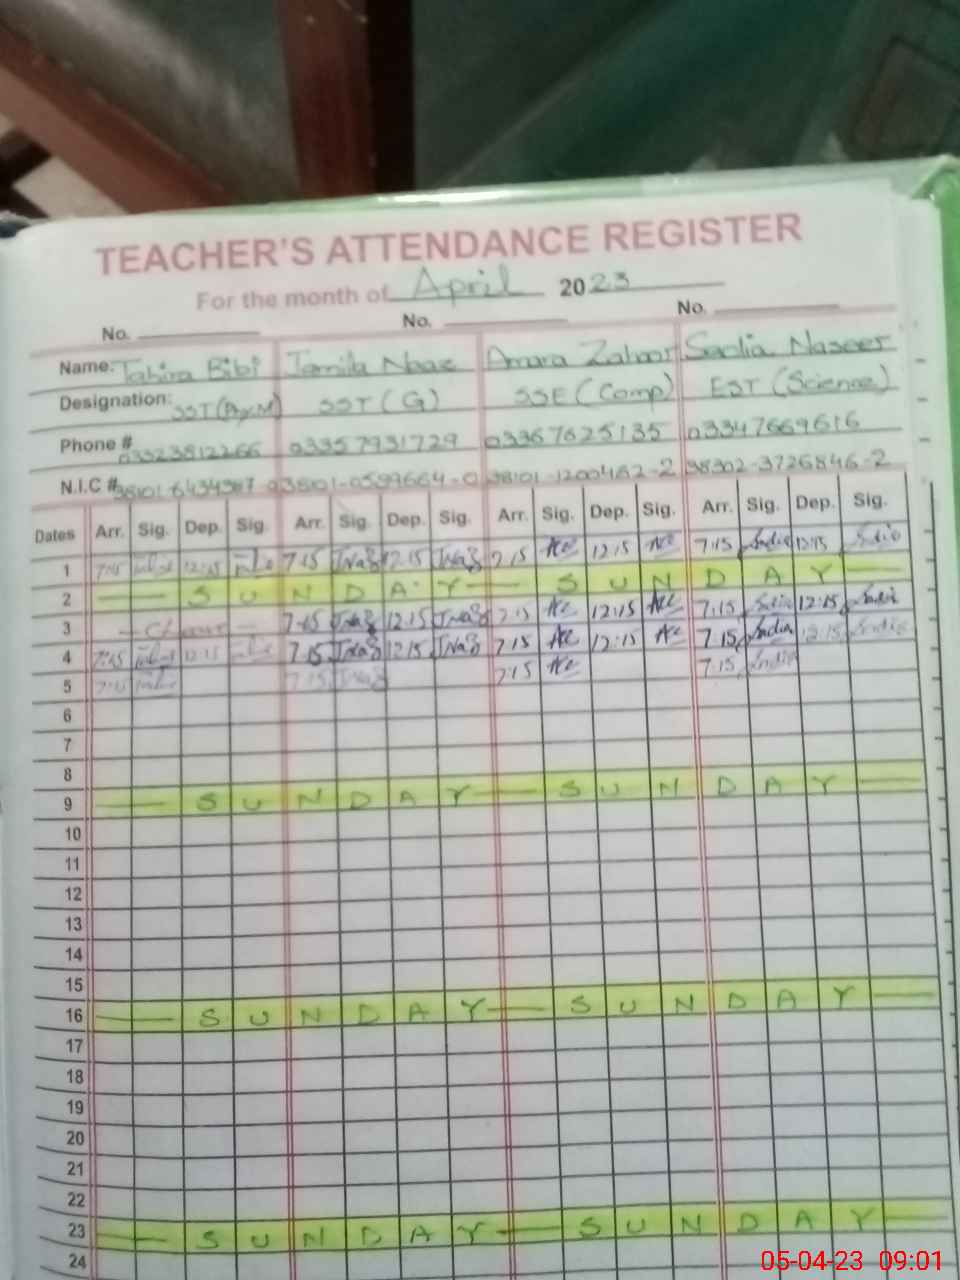 TEACHER'S ATTENDANCE REGISTER
For the month of April 2023
No. No. No.
Name: Tahira Bibi Jamila Naaz Amara Zahoor Sadia Naseer
Designation: SST (Phy.M) SST (G) SSE (Comp) EST (Science)
Phone # 03323812266 03357931729 03367625135 03347669616
N.I.C # 38101-0599664-0 38101-1200462-2 38302-3726846-2
Dates Arr. Sig. Dep. Sig. Arr. Sig. Dep. Sig. Arr. Sig. Dep. Sig. Arr. Sig. Dep. Sig.
1 7:15 12:15 7:15 JNaz 12:15 JNaz 7:15 12:15 7:15 Sadia 12:15 Sadia
2 SUNDAY SUNDAY
3 7:15 JNaz 12:15 JNaz 7:15 12:15 7:15 Sadia 12:15 Sadia
4 7:15 12:15 7:15 JNaz 12:15 JNaz 7:15 12:15 7:15 Sadia 12:15 Sadia
5 7:15 7:15 JNaz 7:15 7:15 Sadia
6
7
8
9 SUNDAY SUNDAY
10
11
12
13
14
15
16 SUNDAY SUNDAY
17
18
19
20
21
22
23 SUNDAY SUNDAY
24
05-04-23 09:01